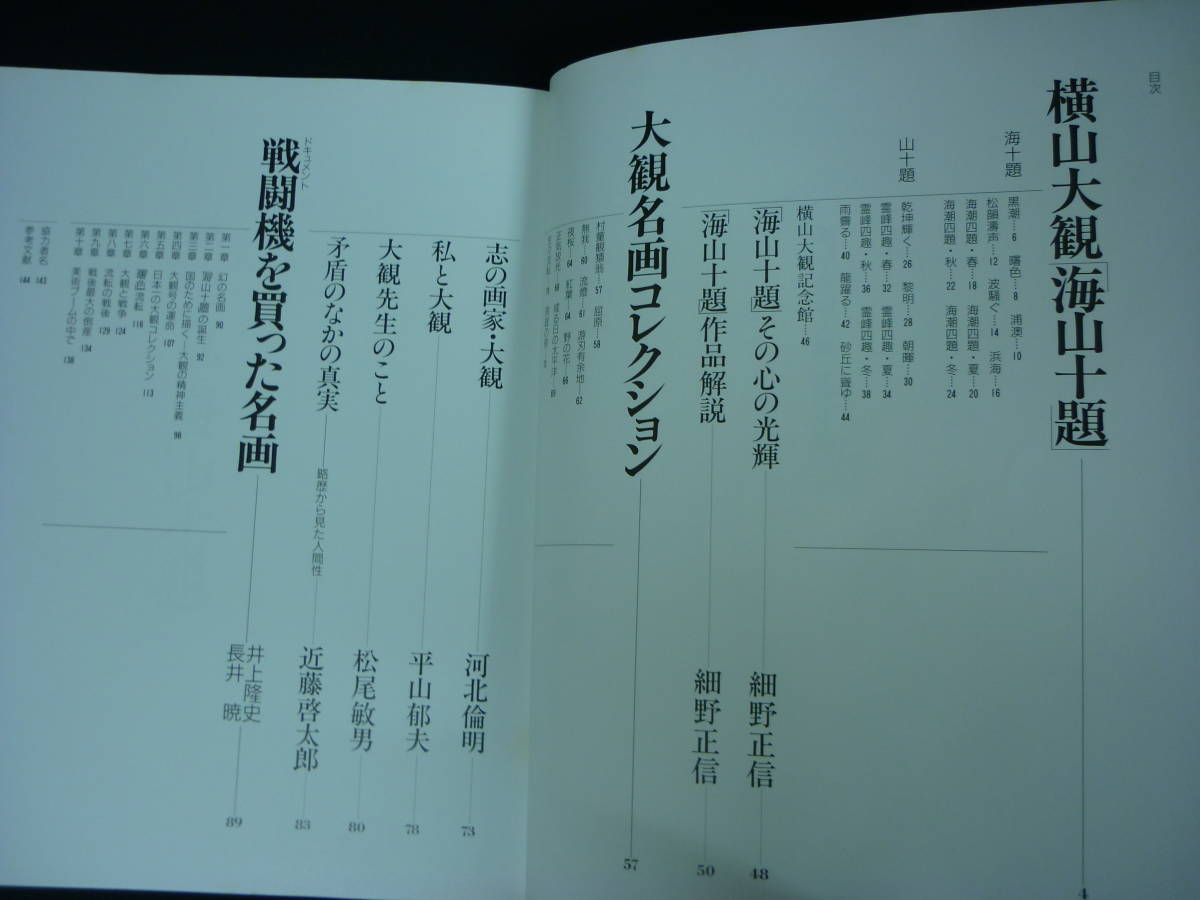 目次
横山大観「海山十題」 4
海十題
黒潮…6 曙色…8 浦澳…10
松韻濤声…12 波騒ぐ…14 浜海…16
海潮四題・春…18 海潮四題・夏…20
海潮四題・秋…22 海潮四題・冬…24
山十題
乾坤輝く…26 黎明…28 朝暉…30
霊峰四趣・春…32 霊峰四趣・夏…34
霊峰四趣・秋…36 霊峰四趣・冬…38
雨霽る…40 龍躍る…42 砂丘に聳ゆ…44
横山大観記念館…46
「海山十題」その心の光輝 細野正信 48
「海山十題」作品解説 細野正信 50
大観名画コレクション 57
村童観猿翁…57 屈原…58
無我…60 流燈…61 游刃有余地…62
夜桜…64 紅葉…64 野の花…66
正気放光… 或る日の太平洋…69
志の画家・大観 河北倫明 73
私と大観 平山郁夫 78
大観先生のこと 松尾敏男 80
矛盾のなかの真実 略歴から見た人間性 近藤啓太郎 83
ドキュメント
戦闘機を買った名画 井上隆史 長井 暁 89
第一章 幻の名画 90
第二章 「海山十題」の誕生 92
第三章 国のために描く―大観の精神主義 98
第四章 大観号の運命 107
第五章 日本一の大観コレクション 113
第六章 「曙色」流転 116
第七章 大観と戦争 124
第八章 流転の戦後 129
第九章 戦後最大の倒産 134
第十章 美術ブームの中で 138
協力者名 143
参考文献 144